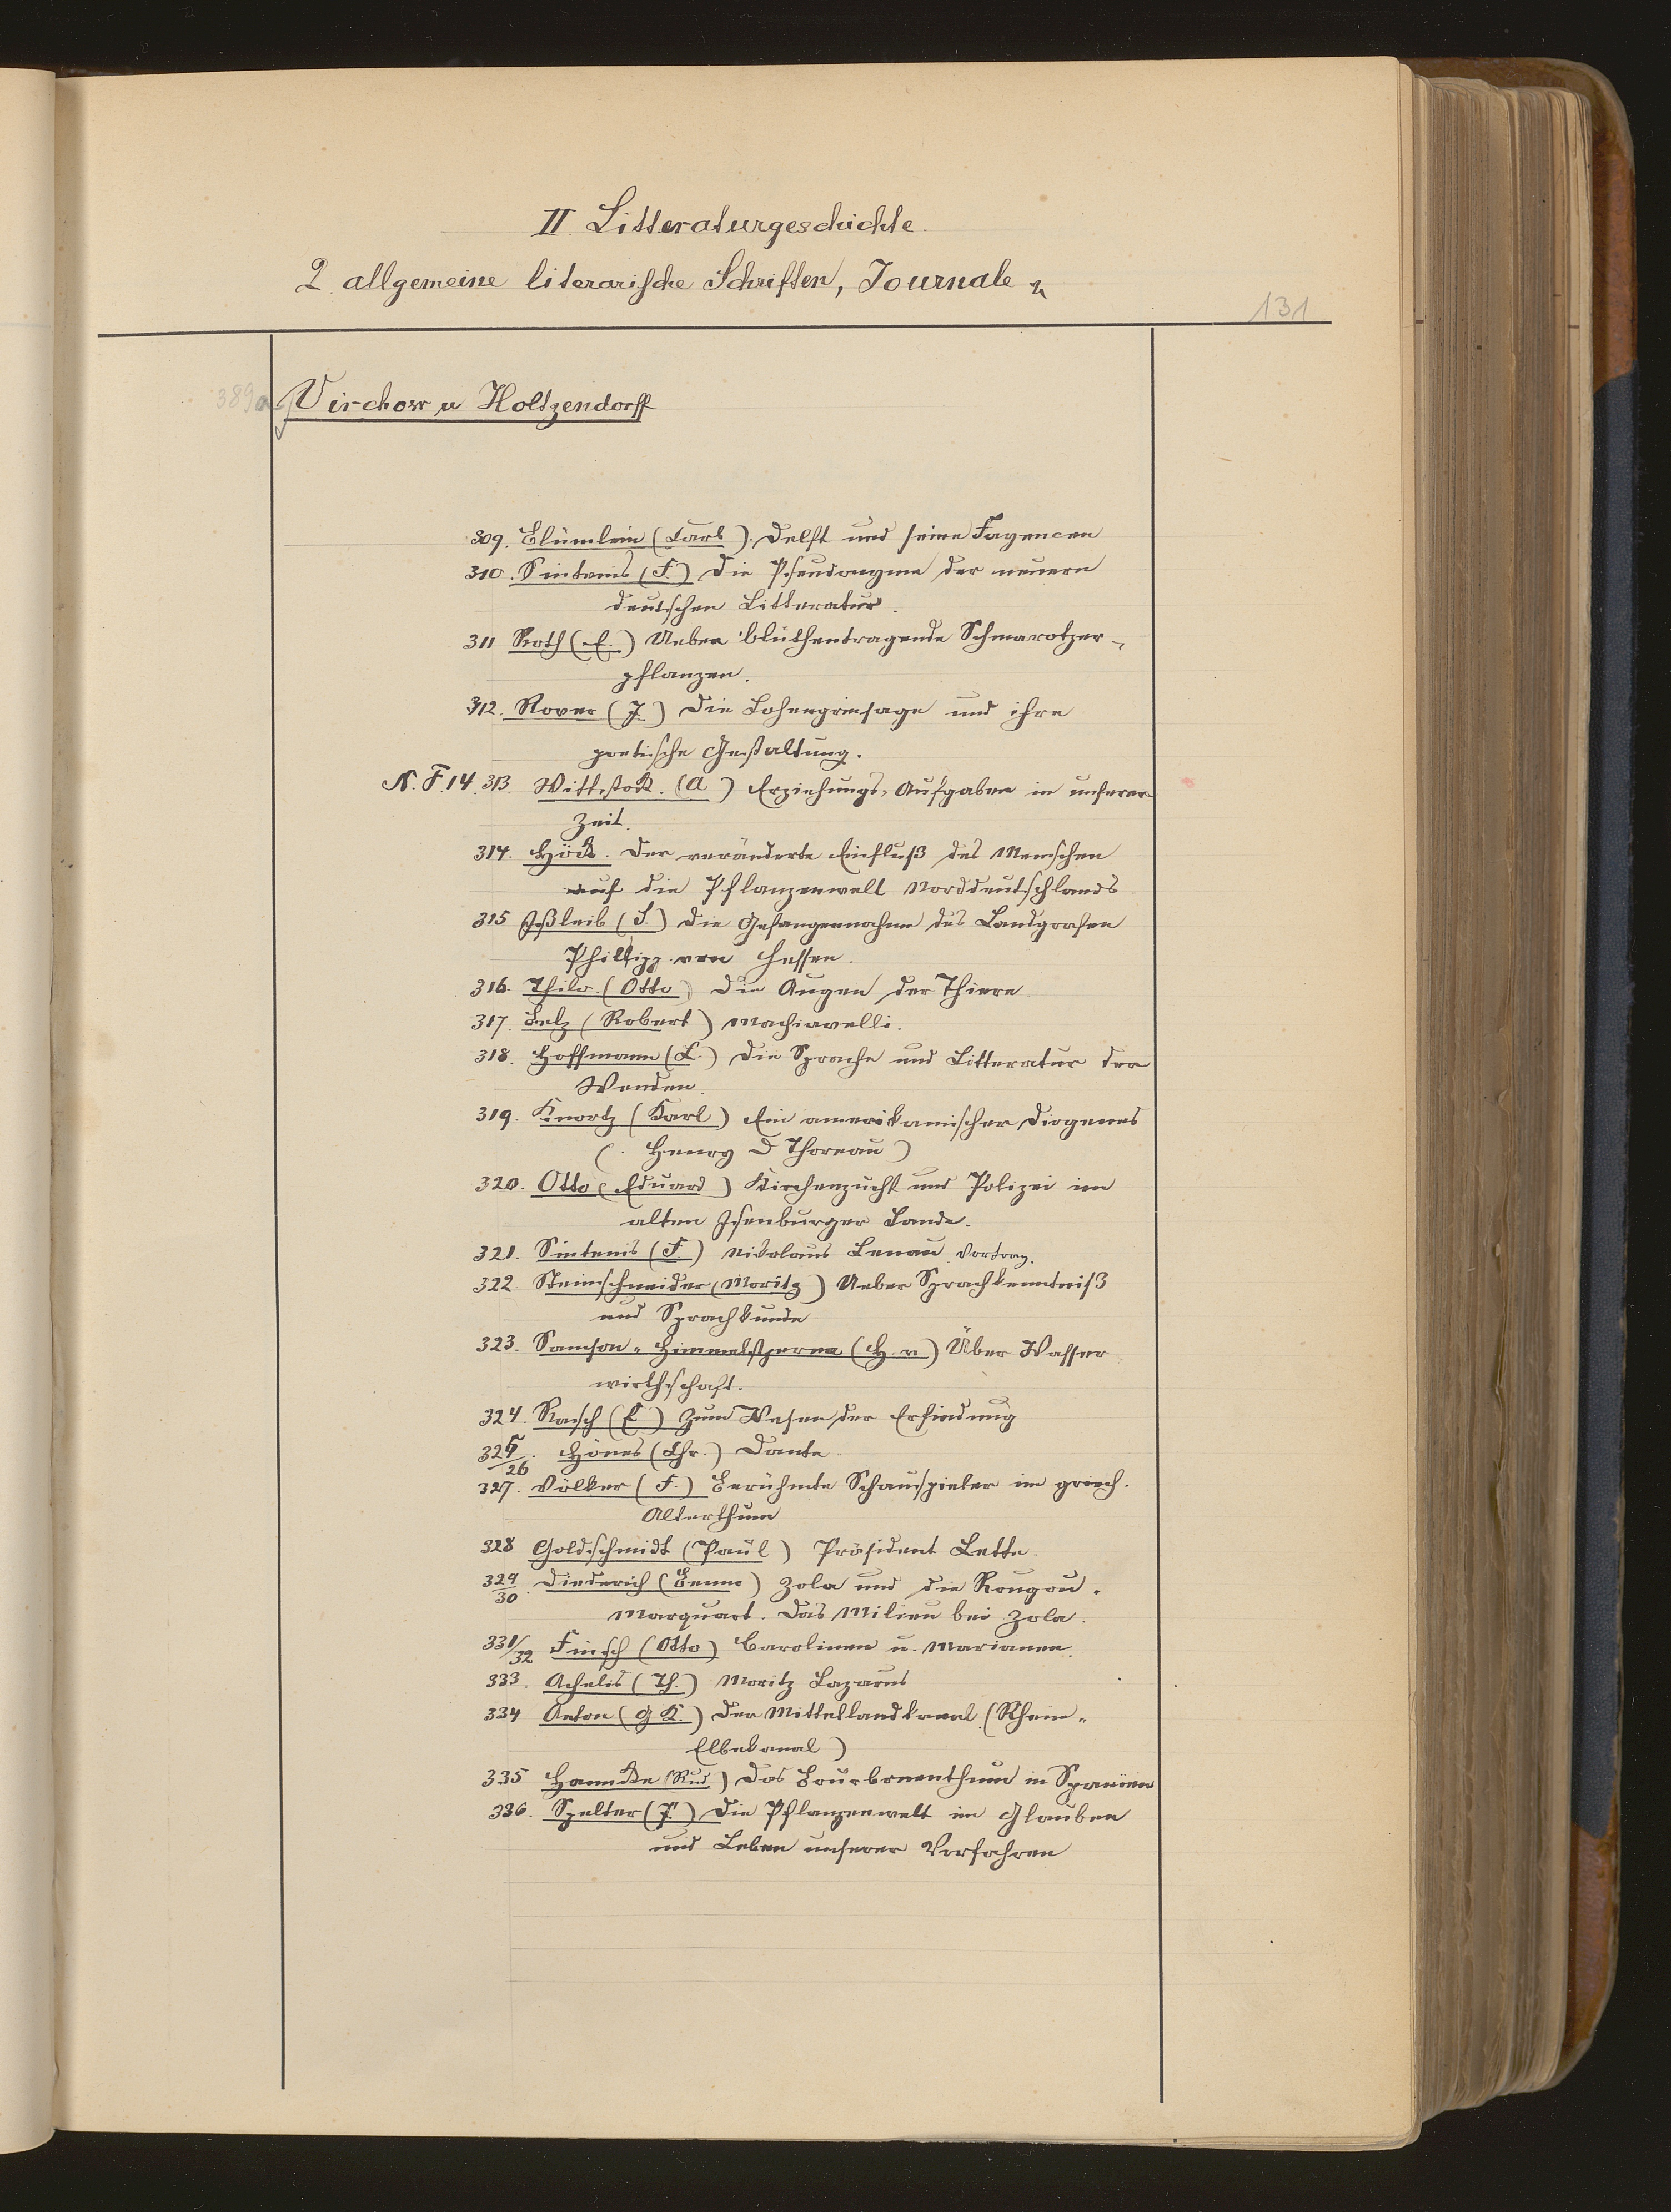 II Litteraturgeschichte.
2. allgemeine literarische Schriften, Journale
131
389a
Virchow u Holtzendorff
309. Blümlein (Carl). Delft und seine Fayencen
310. Sintenis (F.) Die Pseudonyme der neuern
deutschen Litteratur.
311 Roth (E.) Ueber blüthentragende Schmarotzer-
pflanzen.
312. Rover (J.) Die Lohengrinsage und ihre
poetische Gestaltung.
N. F. 14. 313. Wittstock. (A) Erziehungs-Aufgaben in unserer
Zeit.
314. Höck. Der veränderte Einfluß des Menschen
auf die Pflanzenwelt Norddeutschlands
315 Ißleib (S.) Die Gefangennahme des Landgrafen
Philipp von Hessen.
316. Thilo. (Otto) Die Augen der Thiere
317. Belz (Robert) Machiavelli.
318. Hoffmann (L.) Die Sprache und Litteratur der
Wenden.
319. Knortz (Karl) Ein amerikanischer Diogenes
(Henry D Thoreau)
320. Otto (Eduard) Kirchenzucht und Polizei im
alten Isenburger Lande.
321. Sintenis (F.) Nikolaus Lenau Vortrag.
322. Steinschneider (Moritz) Ueber Sprachkenntniß
und Sprachkunde
323. Samson-Himmelstjerna (H. v) Über Wasser
wirthschaft.
324. Rasch (E) Zum Wesen der Erfindung
325/26. Hönes (Chr.) Dante
327. Völker (F.) Berühmte Schauspieler im griech.
Alterthum
328 Goldschmidt (Paul) Präsident Lette.
329/30. Diederich (Benno) Zola und die Rougon-
Marquart. Das Milieu bei Zola.
331/32 Finsch (Otto) Carolinen u. Marianen.
333. Achelis (Th.) Moritz Lazarus
334 Anton (G K.) Der Mittellandkanal (Rhein-
Elbekanal)
335 Hanncke (Rud) Das Bourbonenthum in Spanien
336. Spelter (P.) Die Pflanzenwelt im Glauben
und Leben unserer Vorfahren